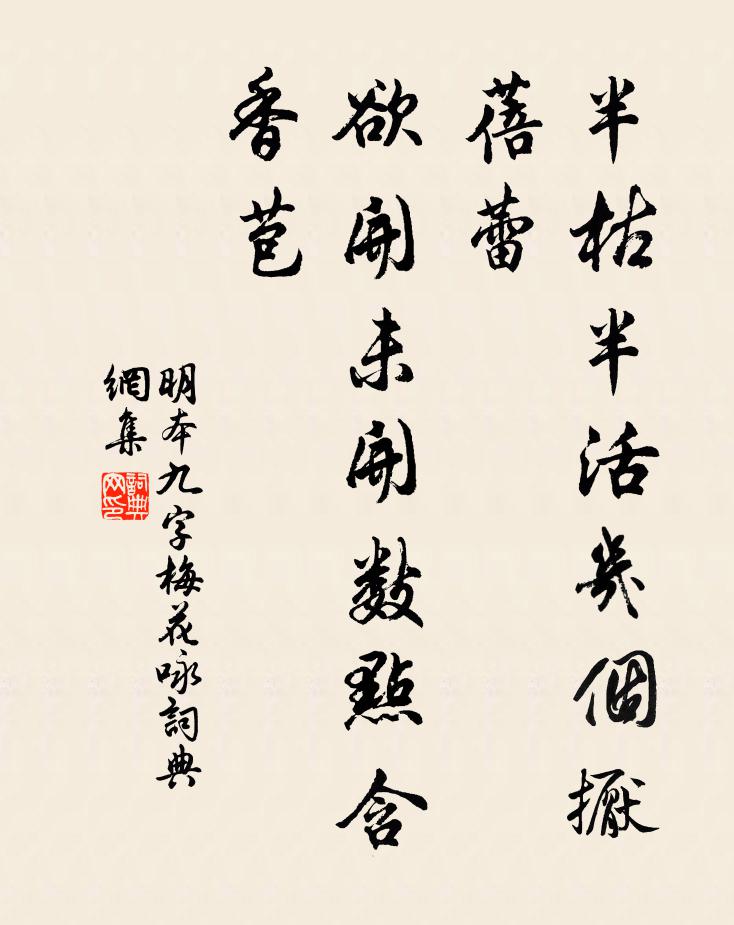 半枯半活幾個擫
蓓蕾
欲開未開數點含
香苞
明本九字梅花咏詞典
網集
詞典網印